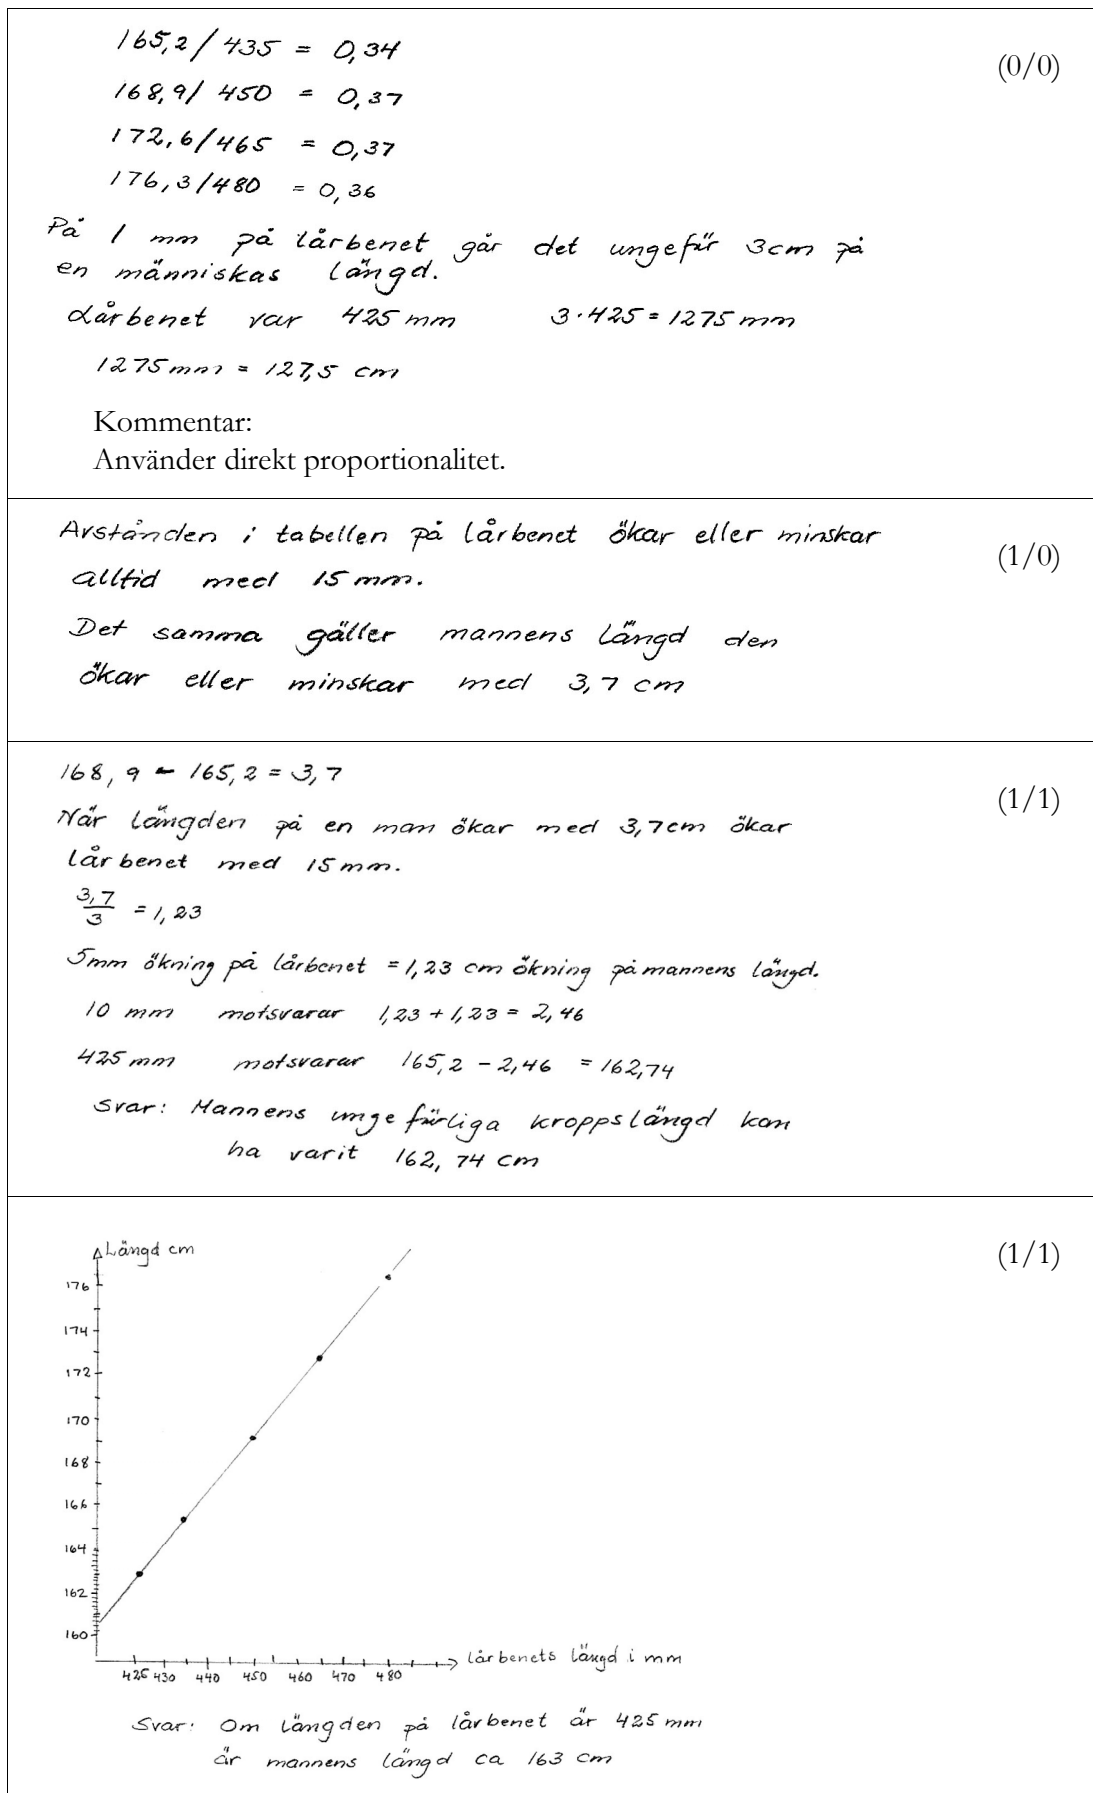 165,2/435 = 0,34
(0/0)
168,9/450 = 0,37
172,6/465 = 0,37
176,3/480 = 0,36
På 1 mm på lårbenet går det ungefär 3cm på
en människas längd.
Lårbenet var 425 mm 3·425 = 1275 mm
1275 mm = 127,5 cm
Kommentar:
Använder direkt proportionalitet.
Avstånden i tabellen på lårbenet ökar eller minskar
(1/0)
alltid med 15 mm.
Det samma gäller mannens längd den
ökar eller minskar med 3,7 cm
168,9 - 165,2 = 3,7
(1/1)
När längden på en man ökar med 3,7cm ökar
lårbenet med 15 mm.
3,7/3 = 1,23
5mm ökning på lårbenet = 1,23 cm ökning på mannens längd.
10 mm motsvarar 1,23 + 1,23 = 2,46
425 mm motsvarar 165,2 - 2,46 = 162,74
Svar: Mannens ungefärliga kroppslängd kan
ha varit 162,74 cm
Längd cm
(1/1)
176
174
172
170
168
166
164
162
160
425 430 440 450 460 470 480
lårbenets längd i mm
Svar: Om längden på lårbenet är 425 mm
är mannens längd ca 163 cm